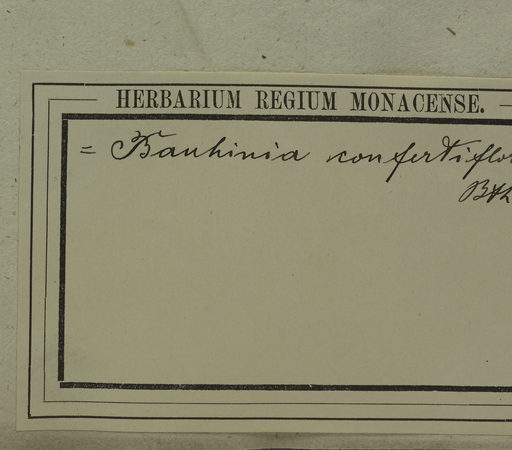 HERBARIUM REGIUM MONACENSE.
= Bauhinia confertiflor
Bth